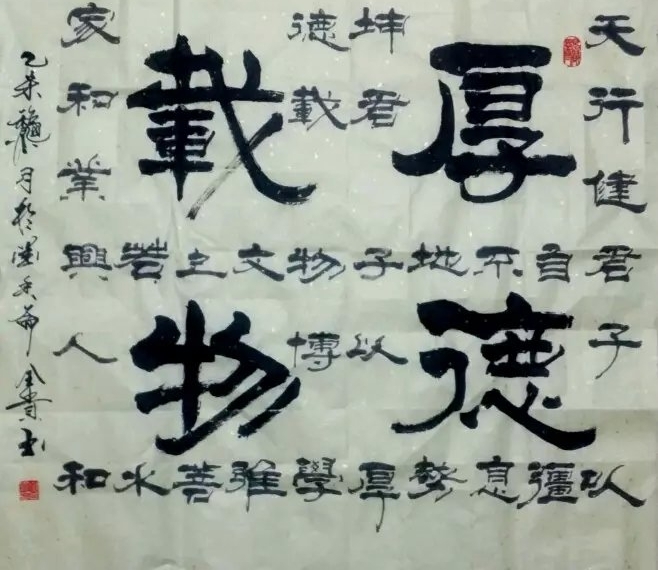 厚德
載物
天行健君子以
自彊
不息
地勢
坤君子以厚
德載物博學
文雅
上善
若水
家和業興人和
乙未臘月於墨香齋